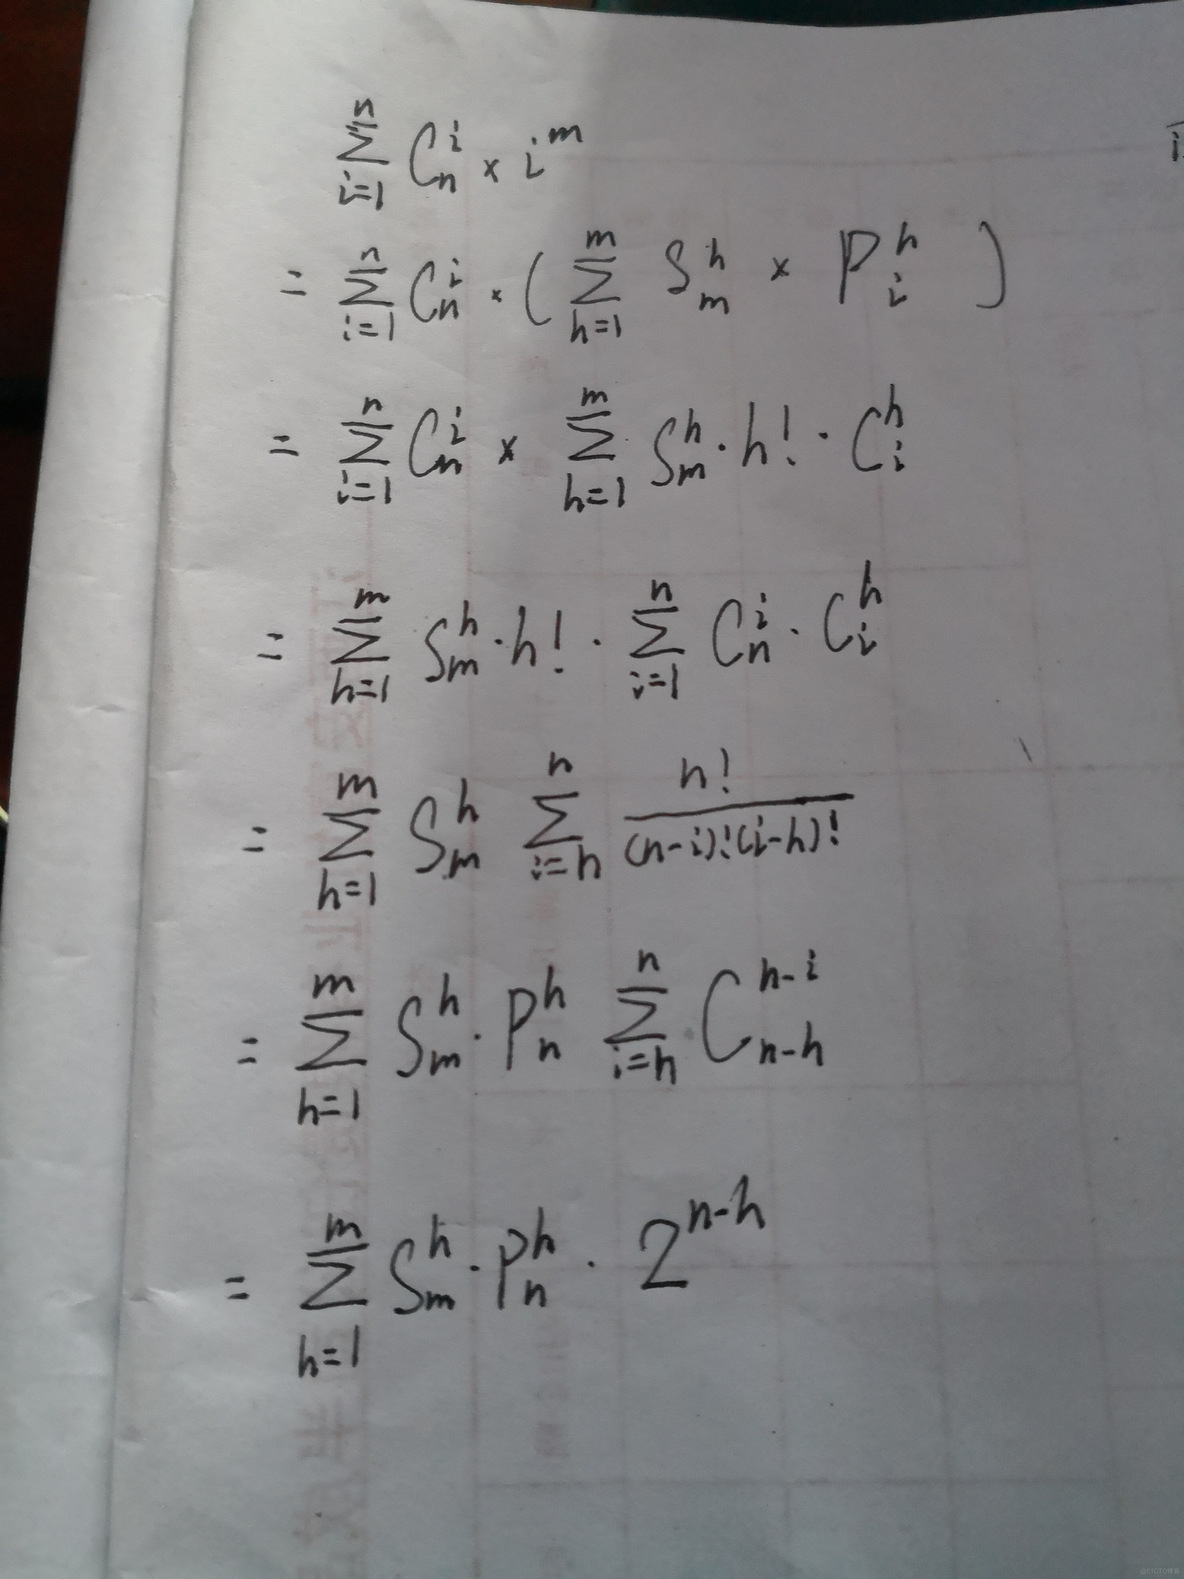 \sum_{i=1}^{n} C_n^i × i^m
= \sum_{i=1}^{n} C_n^i · ( \sum_{h=1}^{m} S_m^h × P_i^h )
= \sum_{i=1}^{n} C_n^i × \sum_{h=1}^{m} S_m^h · h! · C_i^h
= \sum_{h=1}^{m} S_m^h · h! · \sum_{i=1}^{n} C_n^i · C_i^h
= \sum_{h=1}^{m} S_m^h \sum_{i=h}^{n} \frac{n!}{(n-i)!(i-h)!}
= \sum_{h=1}^{m} S_m^h · P_n^h \sum_{i=h}^{n} C_{n-h}^{n-i}
= \sum_{h=1}^{m} S_m^h · P_n^h · 2^{n-h}